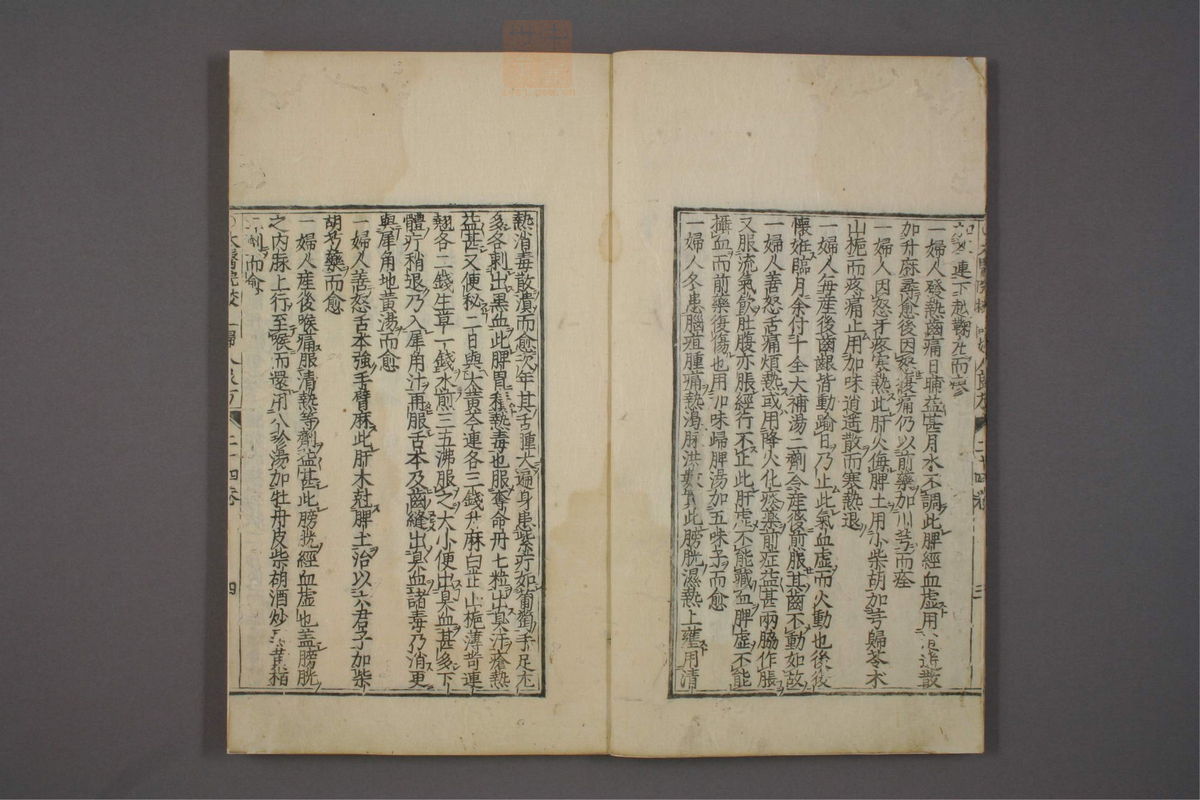 連下越鞠丸而痊
一婦人發熱齒痛日晡益甚月水不調此脾經血虛用逍遥散
加升麻尋愈後因怒復痛仍以前藥加川芎而痊
一婦人因怒牙疼寒熱此肝火侮脾土用小柴胡加芎歸苓朮
山梔而疼痛止用加味逍遥散而寒熱退
一婦人每産後齒齦皆動踰日乃止此氣血虛而火動也後復
懷姙臨月余付十全大補湯二劑令産後煎服其齒不動如故
一婦人善怒舌痛煩熱或用降火化痰藥前症益甚兩脇作脹
又服流氣飲肚腹亦脹經行不止此肝虛不能臟血脾虛不能
攝血而前藥復傷也用加味歸脾湯加五味子而愈
一婦人冬患腦疽腫痛熱渴脉洪數此膀胱濕熱上壅用清
熱消毒散潰而愈次年其舌腫大遍身患紫疔如葡萄手足尤
多各刺出黑血此脾胃積熱毒也服奪命丹七粒出臭汗瘡熱
益甚又便秘二日與大黄令連各三錢升麻白芷山梔薄苛連
翹各二錢生草一錢水煎三五沸服之大小便出臭血甚多下
體疔稍退乃入犀角汁再服舌本及齒縫出臭血諸毒乃消更
與犀角地黄湯而愈
一婦人善怒舌本強手臂麻此肝木尅脾土治以六君子加柴
胡芍藥而愈
一婦人産後喉痛服清熱等劑益甚此膀胱經血虛也盖膀胱
之内脉上行至喉而還用八珍湯加牡丹皮柴胡酒炒黄栢
劑而愈
二十四卷
四